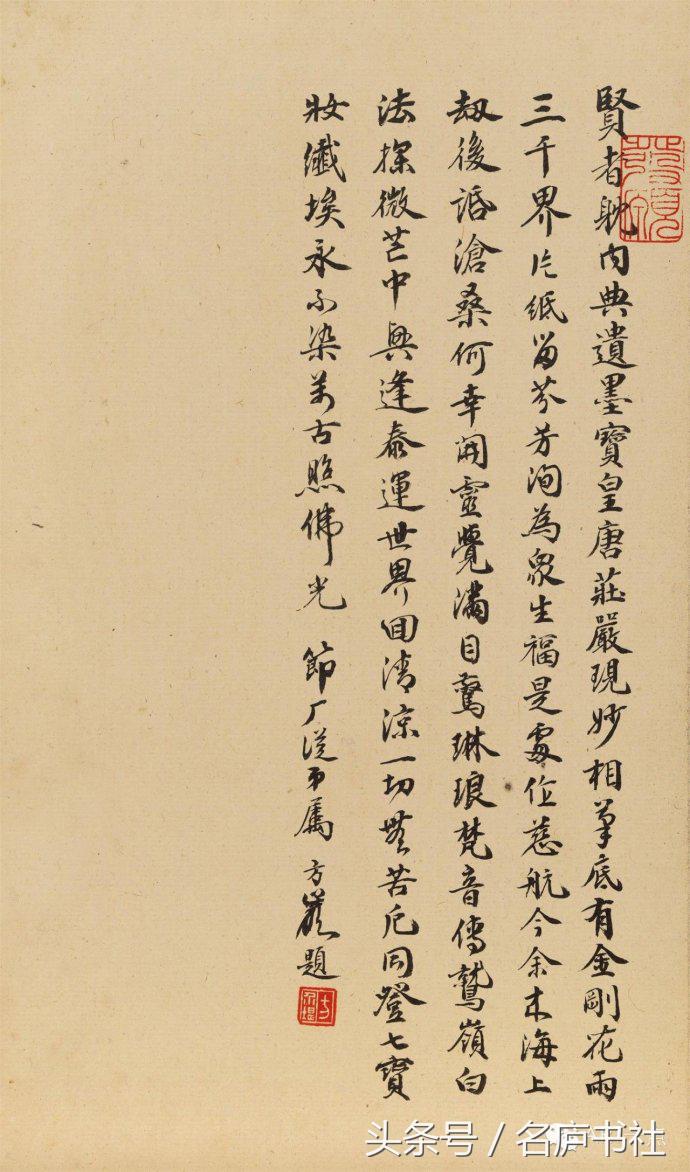 賢者躭内典遺墨寶皇唐莊嚴現妙相筆底有金剛花雨
三千界片紙留芬芳洵為衆生福是處作慈航今余來海上
劫後話滄桑何幸開靈覺滿目驚琳琅梵音傳鷲嶺白
法探微茫中興逢泰運世界回清涼一切無苦厄同登七寶
妝纖埃永不染萬古照佛光 節厂從弟屬 方巖題
头条号 / 名庐书社